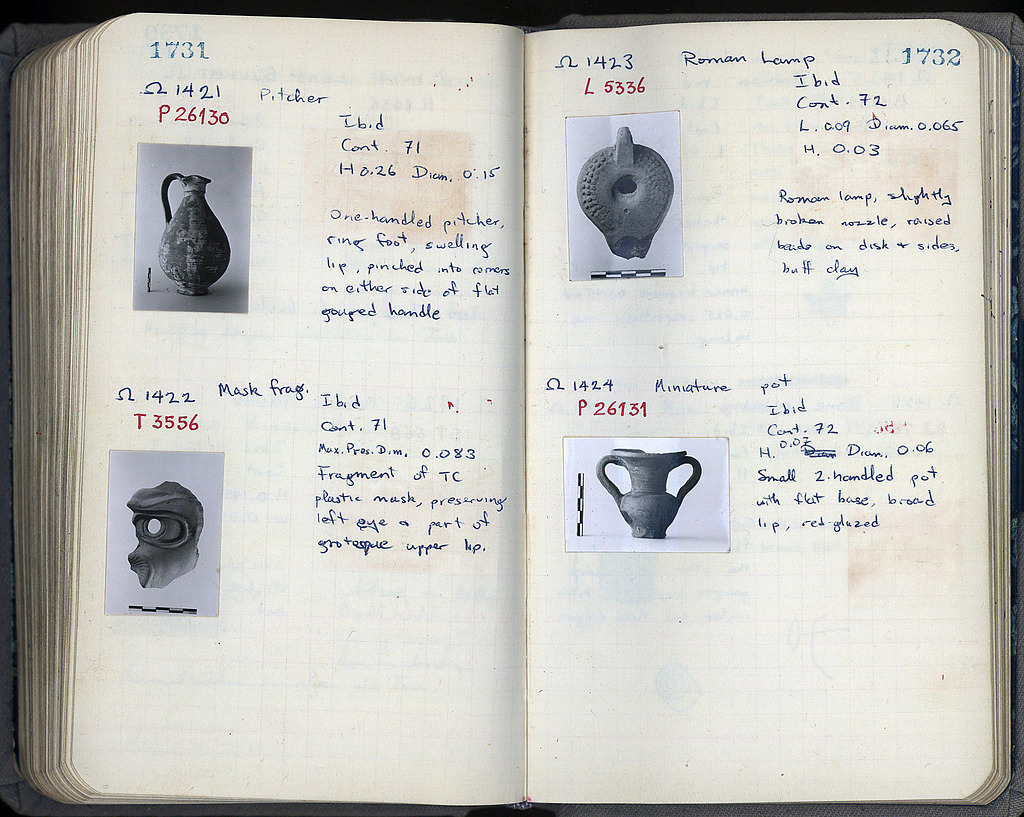 1731
Ω 1421 Pitcher
P 26130
Ibid
Cont. 71
H 0.26 Diam. 0.15
One-handled pitcher,
ring foot, swelling
lip, pinched into corners
on either side of flat
gouged handle
Ω 1422 Mask frag.
T 3556
Ibid
Cont. 71
Max. Pres. Dim. 0.083
Fragment of TC
plastic mask, preserving
left eye & part of
grotesque upper lip.
1732
Ω 1423 Roman Lamp
L 5336
Ibid
Cont. 72
L. 0.09 Diam. 0.065
H. 0.03
Roman lamp, slightly
broken nozzle, raised
beads on disk & sides,
buff clay
Ω 1424 Miniature pot
P 26131
Ibid
Cont. 72
H. 0.07 Diam. 0.06
Small 2-handled pot
with flat base, broad
lip, red-glazed